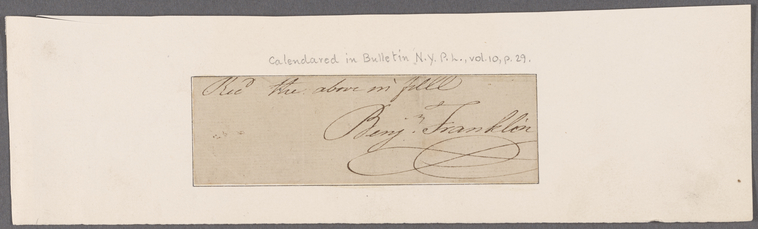 Calendared in Bulletin N.Y.P.L., vol.10, p.29.
Rec'd the above in full
Benj.n Franklin